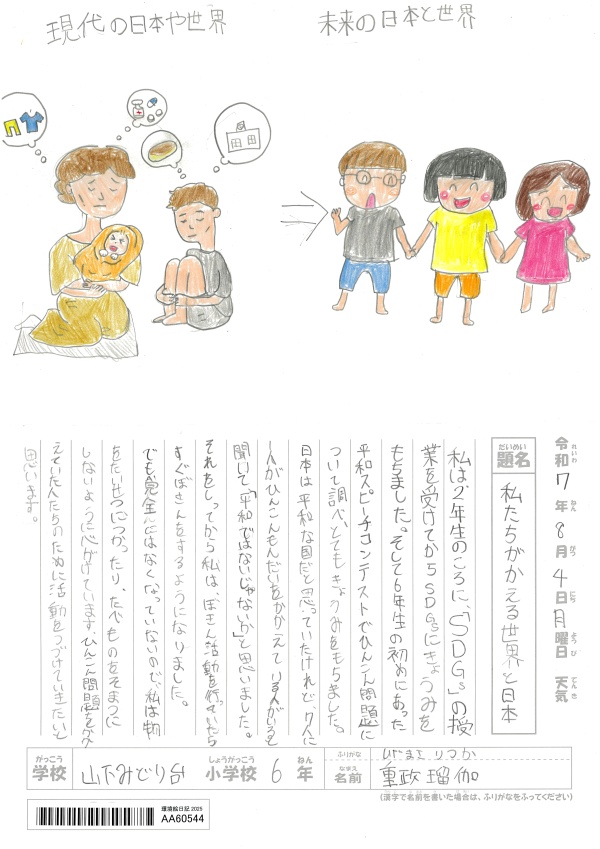 現代の日本や世界
未来の日本と世界
令和7年8月4日月曜日 天気
れいわ ねん がつ にち ようび てんき
だいめい
題名
私たちがかえる世界と日本
私は2年生のころに、「SDGs」の授
業を受けてからSDGsにきょうみを
もちました。そして6年生の初めにあった
平和スピーチコンテストでひんこん問題に
ついて調べ、とてもきょうみをもちました。
日本は平和な国だと思っていたけれど、7人に
1人がひんこんもんだいをかかえている人がいると
聞いて「平和ではないじゃないか」と思いました。
それをしってから私は、ぼきん活動を行っていたら
すぐぼきんをするようになりました。
でも完全にはなくなっていないので、私は物
をたいせつにつかったり、たべものをそまつに
しないように心がけています。ひんこん問題をかか
えていた人たちのために活動をつづけていきたいと
思います。
がっこう
学校
山下みどり台
しょうがっこう
小学校
6
ねん
年
ふりがな
なまえ
名前
重政瑠伽
(漢字で名前を書いた場合は、ふりがなをふってください)
環境絵日記2025
AA60544